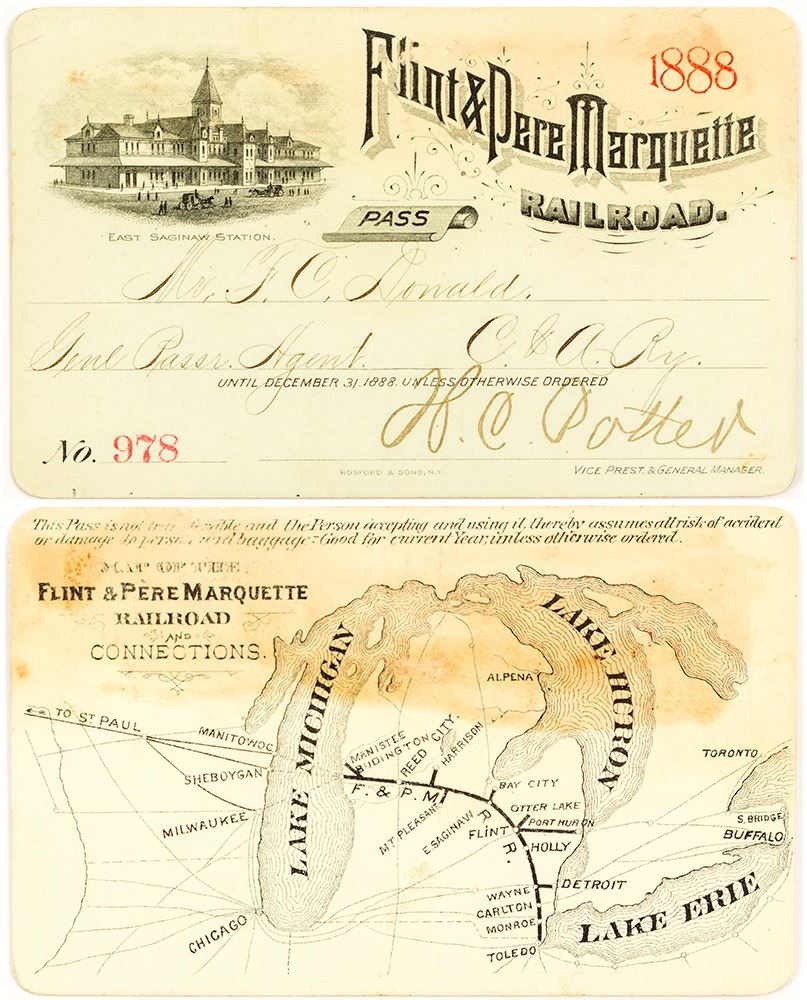 Flint & Pere Marquette
1888
RAILROAD.
PASS
EAST SAGINAW STATION.
Mr. F. C. Donald.
Genl Passr. Agent. C. & A. Ry.
UNTIL DECEMBER 31, 1888. UNLESS OTHERWISE ORDERED
H. C. Potter
No. 978
HOSFORD & SONS, N.Y.
VICE PREST. & GENERAL MANAGER.
This Pass is not transferable and the Person accepting and using it, thereby assumes all risk of accident
or damage to person and baggage - Good for current Year, unless otherwise ordered.
MAP OF THE
FLINT & PÈRE MARQUETTE
RAILROAD
AND
CONNECTIONS.
LAKE MICHIGAN
LAKE HURON
ALPENA
TO ST PAUL
MANITOWOC
MANISTEE
LUDINGTON
REED CITY.
HARRISON
TORONTO
SHEBOYGAN
F. & P. M. R. R.
BAY CITY
MILWAUKEE
MT PLEASANT
E SAGINAW
OTTER LAKE
PORT HURON
FLINT
S. BRIDGE
BUFFALO
HOLLY
WAYNE
DETROIT
CARLTON
MONROE
LAKE ERIE
CHICAGO
TOLEDO